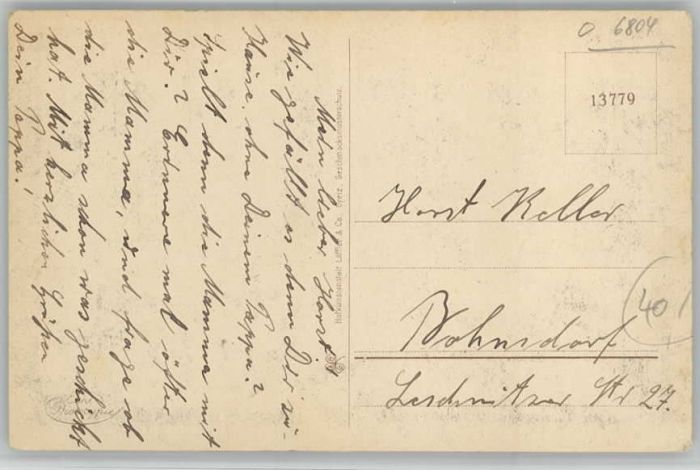 Mein lieber Horst!
Wie gefällt es denn Dir zu-
Hause ohne Deinem Pappa?
Spielt denn die Mamma mit
Dir? Erinnere mal öfter
die Mamma, und frage ob
die Mamma schon was geschickt
hat. Mit herzlichen Grüßen
Dein Pappa!
O 6804
13779
Horst Keller
40
Bohnsdorf
Leschnitzer Str 27.
Hofkunstanstalt Löffler & Co. Greiz.